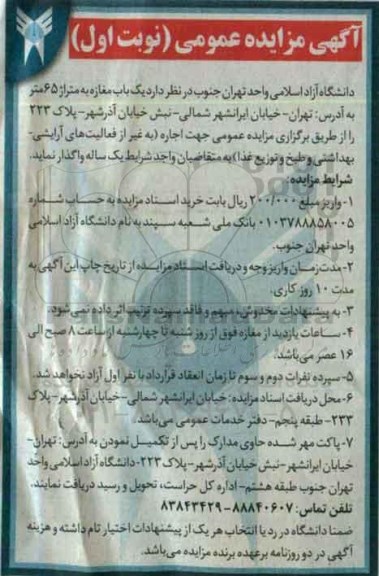 آگهی مزایده عمومی (نوبت اول)
دانشگاه آزاد اسلامی واحد تهران جنوب در نظر دارد یک باب مغازه به متراژ ۶۵متر
به آدرس: تهران- خیابان ایرانشهر شمالی- نبش خیابان آذرشهر- پلاک ۲۲۳
را از طریق برگزاری مزایده عمومی جهت اجاره (به غیر از فعالیت‌های آرایشی-
بهداشتی و طبخ و توزیع غذا) به متقاضیان واجد شرایط یک ساله واگذار نماید.
شرایط مزایده:
۱- واریز مبلغ ۲۰۰/۰۰۰ ریال بابت خرید اسناد مزایده به حساب شماره
۰۱۰۳۷۸۸۸۵۸۰۰۵ بانک ملی شعبه سپند به نام دانشگاه آزاد اسلامی
واحد تهران جنوب.
۲- مدت زمان واریز وجه و دریافت اسناد مزایده از تاریخ چاپ این آگهی به
مدت ۱۰ روز کاری.
۳- به پیشنهادات مخدوش، مبهم و فاقد سپرده ترتیب اثر داده نمی‌شود.
۴- ساعات بازدید از مغازه فوق از روز شنبه تا چهارشنبه از ساعت ۸ صبح الی
۱۶ عصر می‌باشد.
۵- سپرده نفرات دوم و سوم تا زمان انعقاد قرارداد با نفر اول آزاد نخواهد شد.
۶- محل دریافت اسناد مزایده: خیابان ایرانشهر شمالی- خیابان آذرشهر- پلاک
۲۳۳- طبقه پنجم- دفتر خدمات عمومی می‌باشد.
۷- پاکت مهر شده حاوی مدارک را پس از تکمیل نمودن به آدرس: تهران-
خیابان ایرانشهر- نبش خیابان آذرشهر- پلاک ۲۲۳- دانشگاه آزاد اسلامی واحد
تهران جنوب طبقه هشتم- اداره کل حراست، تحویل و رسید دریافت نمایند.
تلفن تماس: ۸۸۸۴۰۶۰۷- ۸۳۸۴۳۴۲۹
ضمنا دانشگاه در رد یا انتخاب هر یک از پیشنهادات اختیار تام داشته و هزینه
آگهی در دو روزنامه برعهده برنده مزایده می‌باشد.